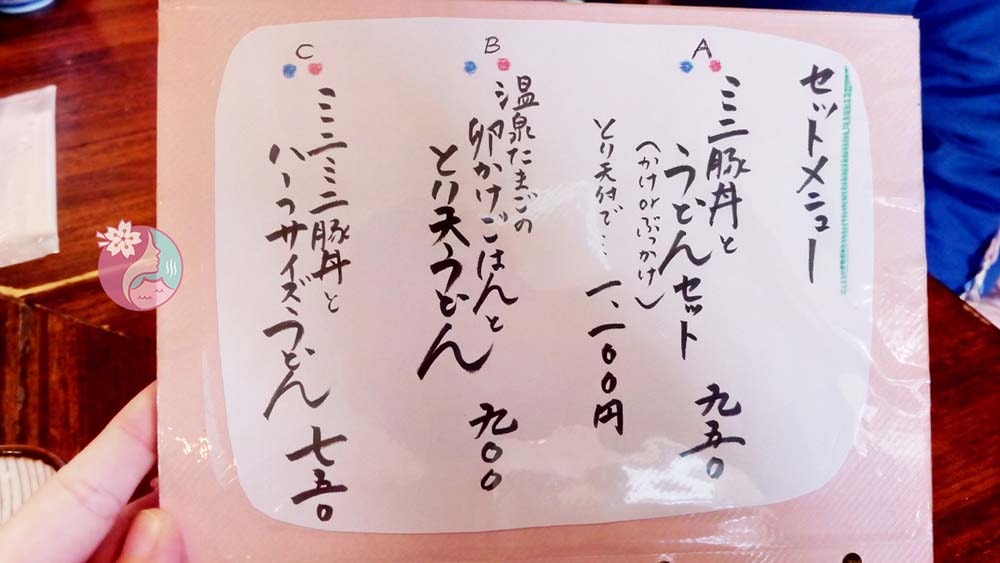 セットメニュー
A
ミニ豚丼と
うどんセット
(かけorぶっかけ)
九五〇
とり天付で…
一、一〇〇円
B
温泉たまごの
卵かけごはんと
とり天うどん
九〇〇
C
ミニミニ豚丼と
ハーフサイズうどん
七五〇